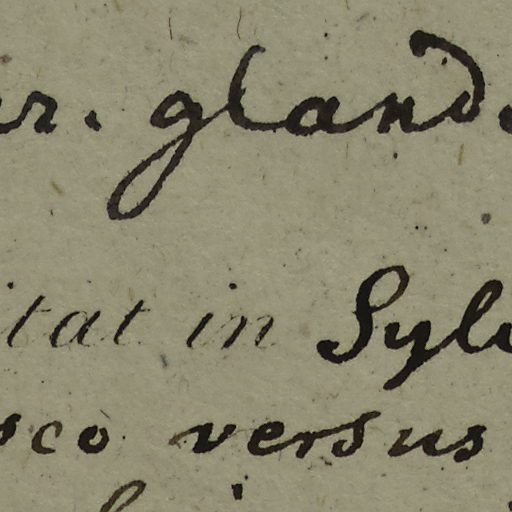 r. gland
itat in Sylv
sco versus